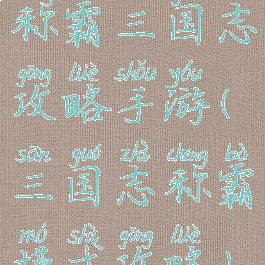 称霸三国志
gōng lüè shǒu yóu
攻略手游(
sān guó zhì chēng bà
三国志称霸
mó shì gōng lüè
模式攻略)